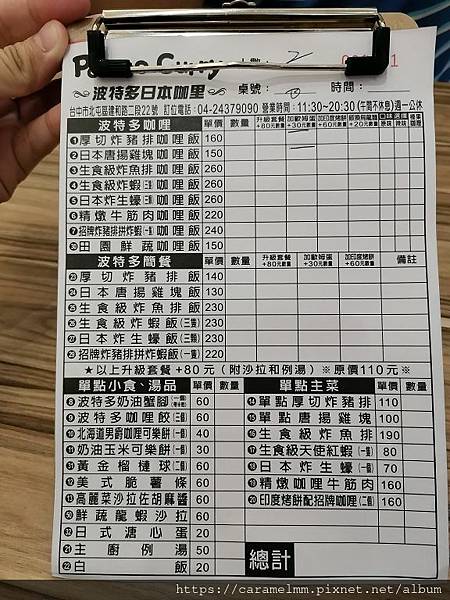 Curry
波特多日本咖哩 桌號： 時間：
台中市北屯區建和路二段22號 訂位電話：04-24379090 營業時間：11:30~20:30(午間不休息)週一公休
波特多咖哩 單價 數量 升級套餐+80元數量 加歐姆蛋+30元數量 加印度烤餅+60元數量
①厚切炸豬排咖哩飯 160
②日本唐揚雞塊咖哩飯 150
③生食級炸魚排咖哩飯 260
④生食級炸蝦(三隻)咖哩飯 260
⑤日本炸生蠔(三顆)咖哩飯 260
⑥精燉牛筋肉咖哩飯 220
⑦招牌炸豬排拼炸蝦(一隻)咖哩飯 240
田園鮮蔬咖哩飯 150
波特多簡餐 單價 數量 升級套餐+80元數量 加歐姆蛋+30元數量 加印度烤餅+60元數量 備註
厚切炸豬排飯 140
日本唐揚雞塊飯 130
生食級炸魚排飯 230
生食級炸蝦飯(三隻) 230
日本炸生蠔飯(三顆) 230
招牌炸豬排拼炸蝦飯(一隻) 220
★以上升級套餐+80元（附沙拉和例湯）※原價110元※
單點小食、湯品 單價 數量
波特多奶油蟹腳 60
波特多咖哩餃(三個) 60
北海道男爵咖哩可樂餅(一個) 40
奶油玉米可樂餅(一個) 30
黃金榴槤球(二個) 60
美式脆薯條 60
高麗菜沙拉佐胡麻醬 60
鮮蔬龍蝦沙拉 60
日式溏心蛋 20
主廚例湯 50
白飯 20
單點主菜 單價 數量
單點厚切炸豬排 110
單點唐揚雞塊 100
生食級炸魚排 190
生食級天使紅蝦(一隻) 80
日本炸生蠔(一顆) 70
精燉咖哩牛筋肉 160
印度烤餅配招牌咖哩(二個) 160
總計
https://caramelmm.pixnet.net/album